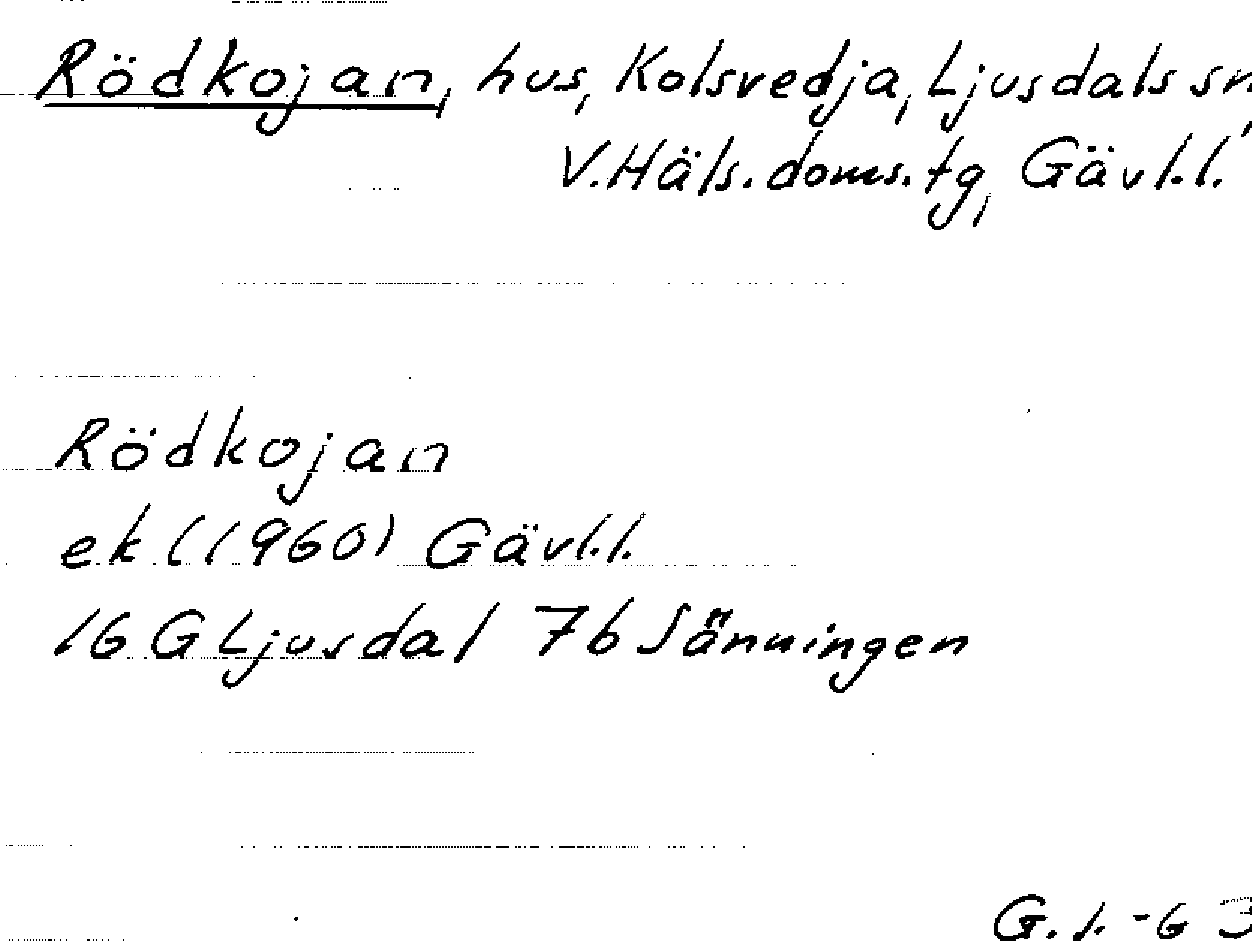 Rödkojan, hus, Kolsvedja, Ljusdals sn,
V.Häls.doms.tg, Gävl.l.
Rödkojan
ek (1960) Gävl.l.
16 G Ljusdal 7b Sänningen
G.l. -63